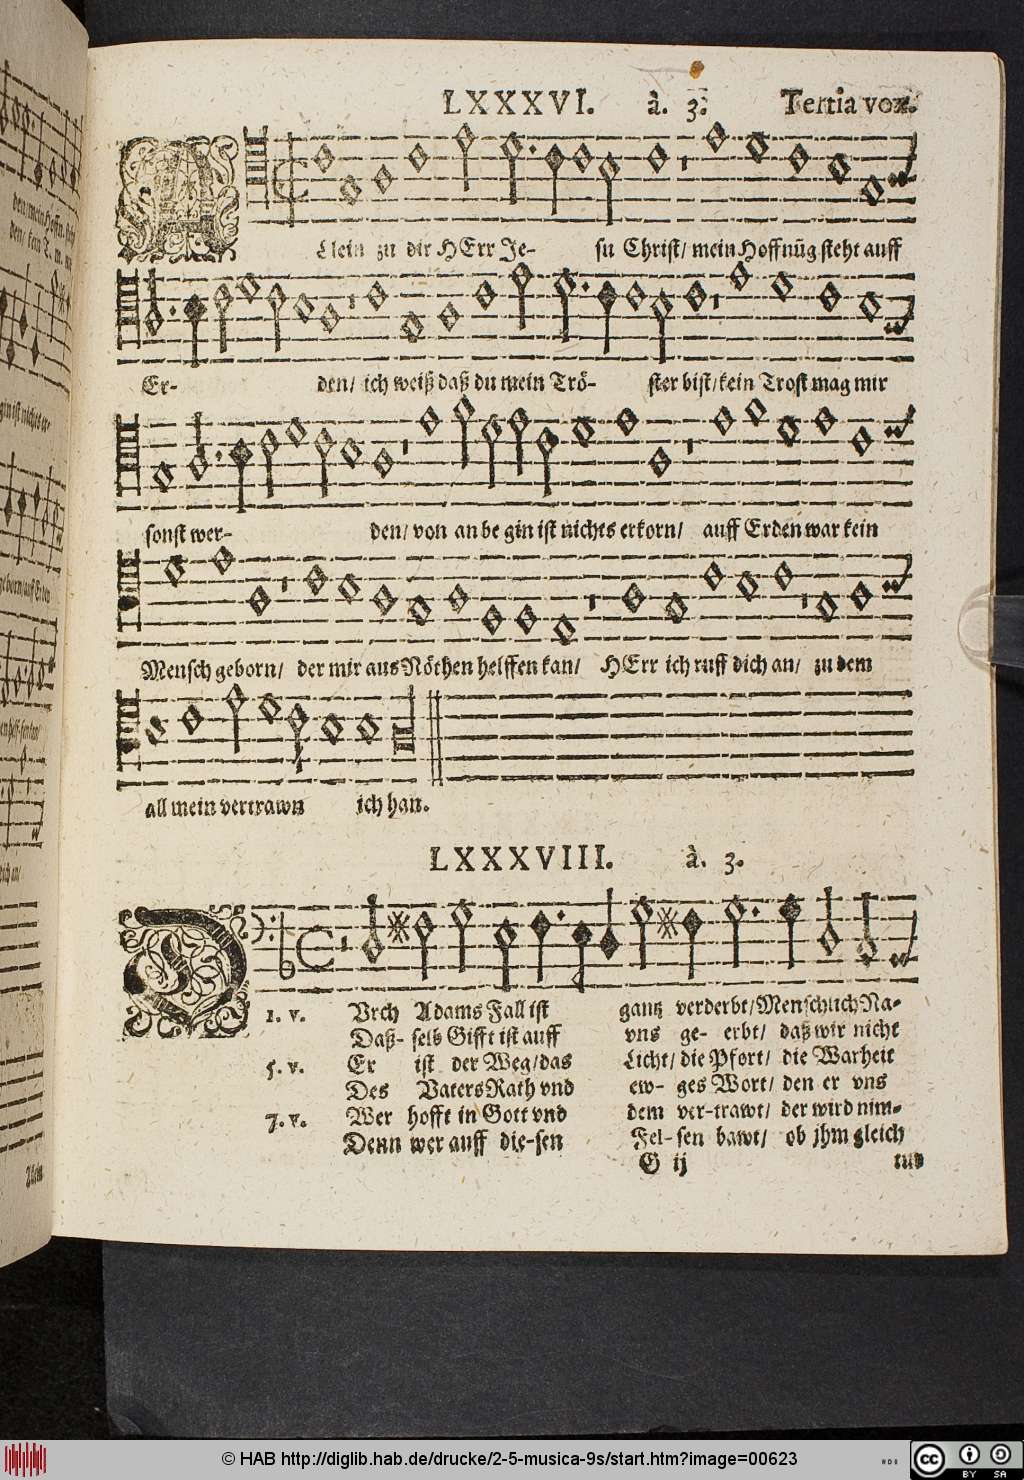 LXXXVI. à. 3. Tertia vox.
Allein zu dir HErr Je- su Christ/ mein Hoffnūg steht auff
Er- den/ ich weiß daß du mein Trö- ster bist/ kein Trost mag mir
sonst wer- den/ von anbe gin ist nichts erkorn/ auff Erden war kein
Mensch geborn/ der mir aus Nöthen helffen kan/ HErr ich ruff dich an/ zu dem
all mein vertrawn ich han.
LXXXVIII. à. 3.
1. v. DVrch Adams Fall ist gantz verderbt/ Menschlich Na-
Daß- selb Gifft ist auff vns ge- erbt/ daß wir nicht
5. v. Er ist der Weg/ das Licht/ die Pfort/ die Warheit
Des Vaters Rath vnd ew- ges Wort/ den er vns
7. v. Wer hofft in Gott vnd dem ver-trawt/ der wird nim-
Denn wer auff die-sen Fel- sen bawt/ ob jhm gleich
G ij tud
© HAB http://diglib.hab.de/drucke/2-5-musica-9s/start.htm?image=00623
cc BY SA